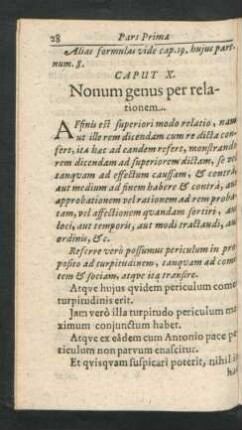 28 Pars Prima
Alias formulas vide cap. 19. hujus part.
num. 8.
CAPUT X.
Nonum genus per rela-
tionem.
Affinis est superiori modo relatio, nam
ut ille rem dicendam cum re dicta con-
fert, ita hæc ad eandem refert, monstrando
rem dicendam ad superiorem dictam, se vel
tanquam ad effectum caussam, & contra,
aut medium ad finem habere & contrà, aut
approbationem vel rationem ad rem proba-
tam, vel affectionem quandam sortiri, aut
loci, aut temporis, aut modi tractandi, aut
ordinis, &c.
Referre verò possumus periculum in pro
posito ad turpitudinem, tanquam ad comi-
tem & sociam, atque ita transire.
Atqve hujus qvidem periculum comes
turpitudinis erit.
Jam verò illa turpitudo periculum ma
ximum conjunctum habet.
Atqve ex eâdem cum Antonio pace pe
riculum non parvum enascitur.
Et qvisqvam suspicari poterit, nihil